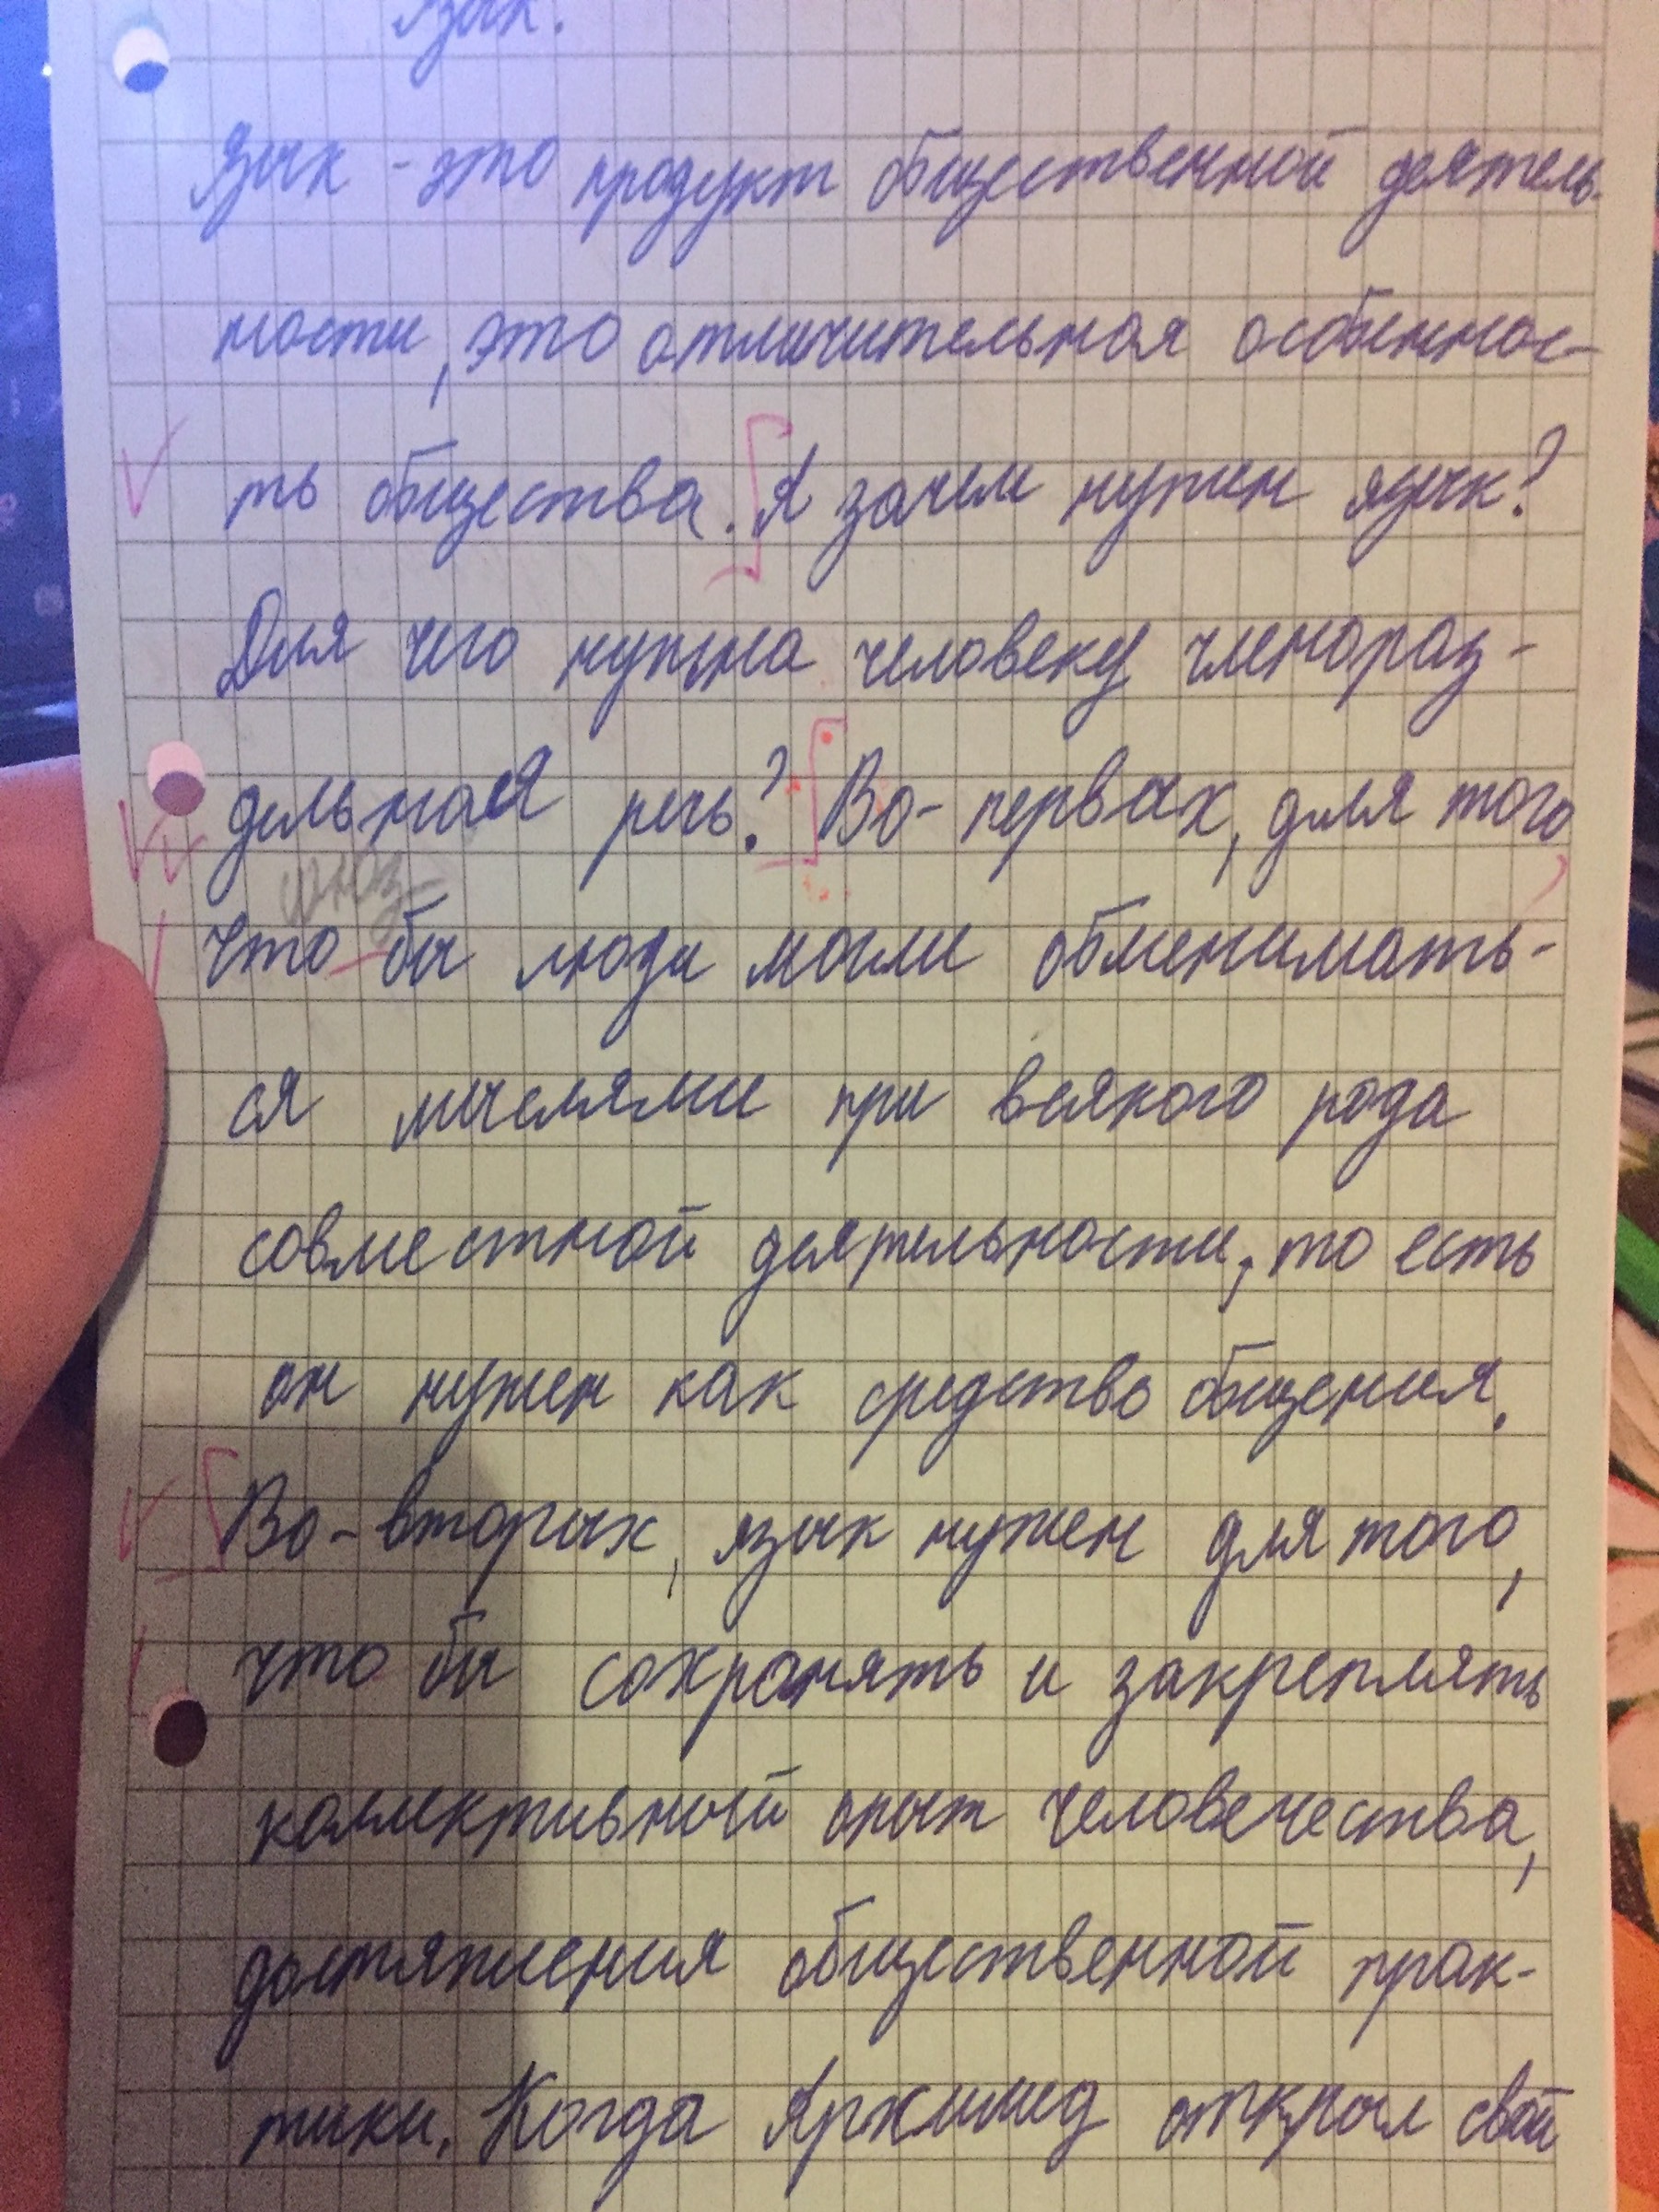 Язык.
Язык - это продукт общественной деятель-
ности, это отличительная особеннос-
ть общества. А зачем нужен язык?
Для чего нужна человеку членораз-
дельная речь? Во-первых, для того,
что бы люди могли обменимать-
ся мыслями при всякого рода
совместной деятельности, то есть
он нужен как средство общения.
Во-вторых, язык нужен для того,
что бы сохранять и закреплять
коллективный опыт человечества,
достяжения общественной прак-
тики. Когда Архимед открыл свой